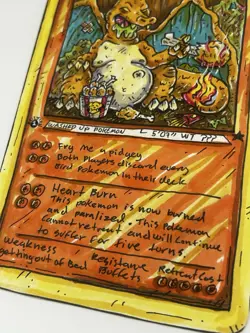 WASHED UP POKEMON L 5'09" WT ???
Fry me a pidgey
Both players discard every
Bird Pokemon in their deck
Heart Burn
This pokemon is now burned
and paralized. This Pokemon
cannot retreat and will continue
to suffer for five turns.
weakness Resistance Retreat Cost
getting out of bed Buffets